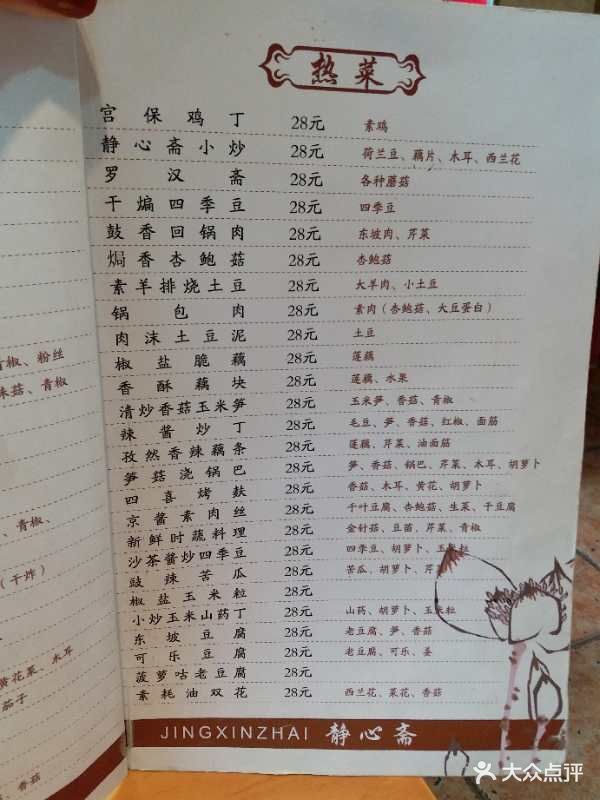 热菜
宫保鸡丁 28元 素鸡
静心斋小炒 28元 荷兰豆、藕片、木耳、西兰花
罗汉斋 28元 各种蘑菇
干煸四季豆 28元 四季豆
鼓香回锅肉 28元 东坡肉、芹菜
焗香杏鲍菇 28元 杏鲍菇
素羊排烧土豆 28元 大羊肉、小土豆
锅包肉 28元 素肉（杏鲍菇、大豆蛋白）
肉沫土豆泥 28元 土豆
椒盐脆藕 28元 莲藕
香酥藕块 28元 莲藕、水果
清炒香菇玉米笋 28元 玉米笋、香菇、青椒
辣酱炒丁 28元 毛豆、笋、香菇、红椒、面筋
孜然香辣藕条 28元 莲藕、芹菜、油面筋
笋菇浇锅巴 28元 笋、香菇、锅巴、芹菜、木耳、胡萝卜
四喜烤麸 28元 香菇、木耳、黄花、胡萝卜
京酱素肉丝 28元 千叶豆腐、杏鲍菇、生菜、干豆腐
新鲜时蔬料理 28元 金针菇、豆苗、芹菜、青椒
沙茶酱炒四季豆 28元 四季豆、胡萝卜、玉米粒
豉辣苦瓜 28元 苦瓜、胡萝卜、芹
椒盐玉米粒 28元
小炒玉米山药丁 28元 山药、胡萝卜、玉米粒
东坡豆腐 28元 老豆腐、笋、香菇
可乐豆腐 28元 老豆腐、可乐、姜
菠萝咕老豆腐 28元
素耗油双花 28元 西兰花、菜花、香菇
JINGXINZHAI 静心斋
青椒、粉丝
辣菇、青椒
、青椒
（干炸）
黄花菜、木耳
茄子
、香菇
大众点评